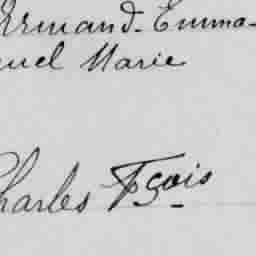 Armand-Emma-
nuel Marie
Charles Fçois